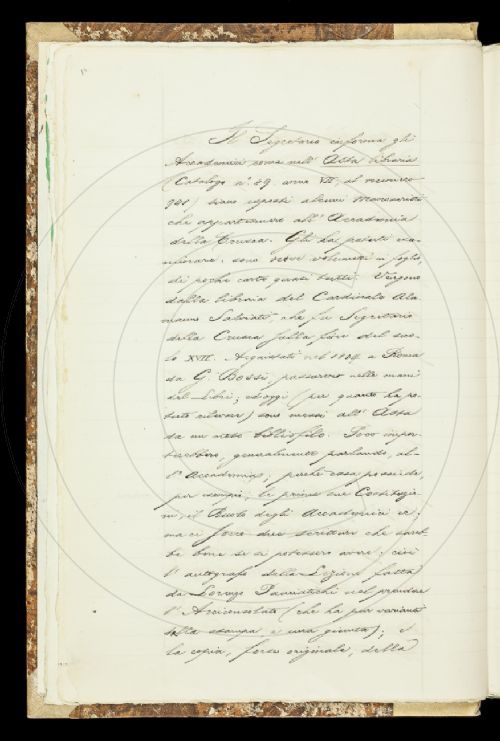 Il Segretario informa gli
Accademici come nell' Asta libraria
(Catalogo n.° 49, anno VII, al numero
 siano esposti alcuni Manoscritti
che appartennero all' Accademia
della Crusca. Gli ha potuti esa-
minare: sono nove volumetti in foglio,
di poche carte quasi tutti. Vengono
dalla libreria del Cardinale Ala-
manno Salviati, che fu Segretario
della Crusca sulla fine del seco-
lo XVII. Acquistati nel a Roma
da G. Bossi, passarono nelle mani
del Libri; ed oggi (per quanto ha po-
tuto rilevare) sono messi all' Asta
da un noto bibliofilo. Poco impor-
terebbero, generalmente parlando, al-
l' Accademia; perchè essa possiede,
per esempio, le prime sue Costituzio-
ni, il Ruolo degli Accademici ec.
ma ci sono due scritture che sareb-
be bene se si potessero avere: cioè
l' autografo della Lezione fatta
da Lorenzo Panciatichi nel prendere
l' Arciconsolato (che ha pur varianti
dalla stampa, e una giunta); e
la copia, forse originale, della